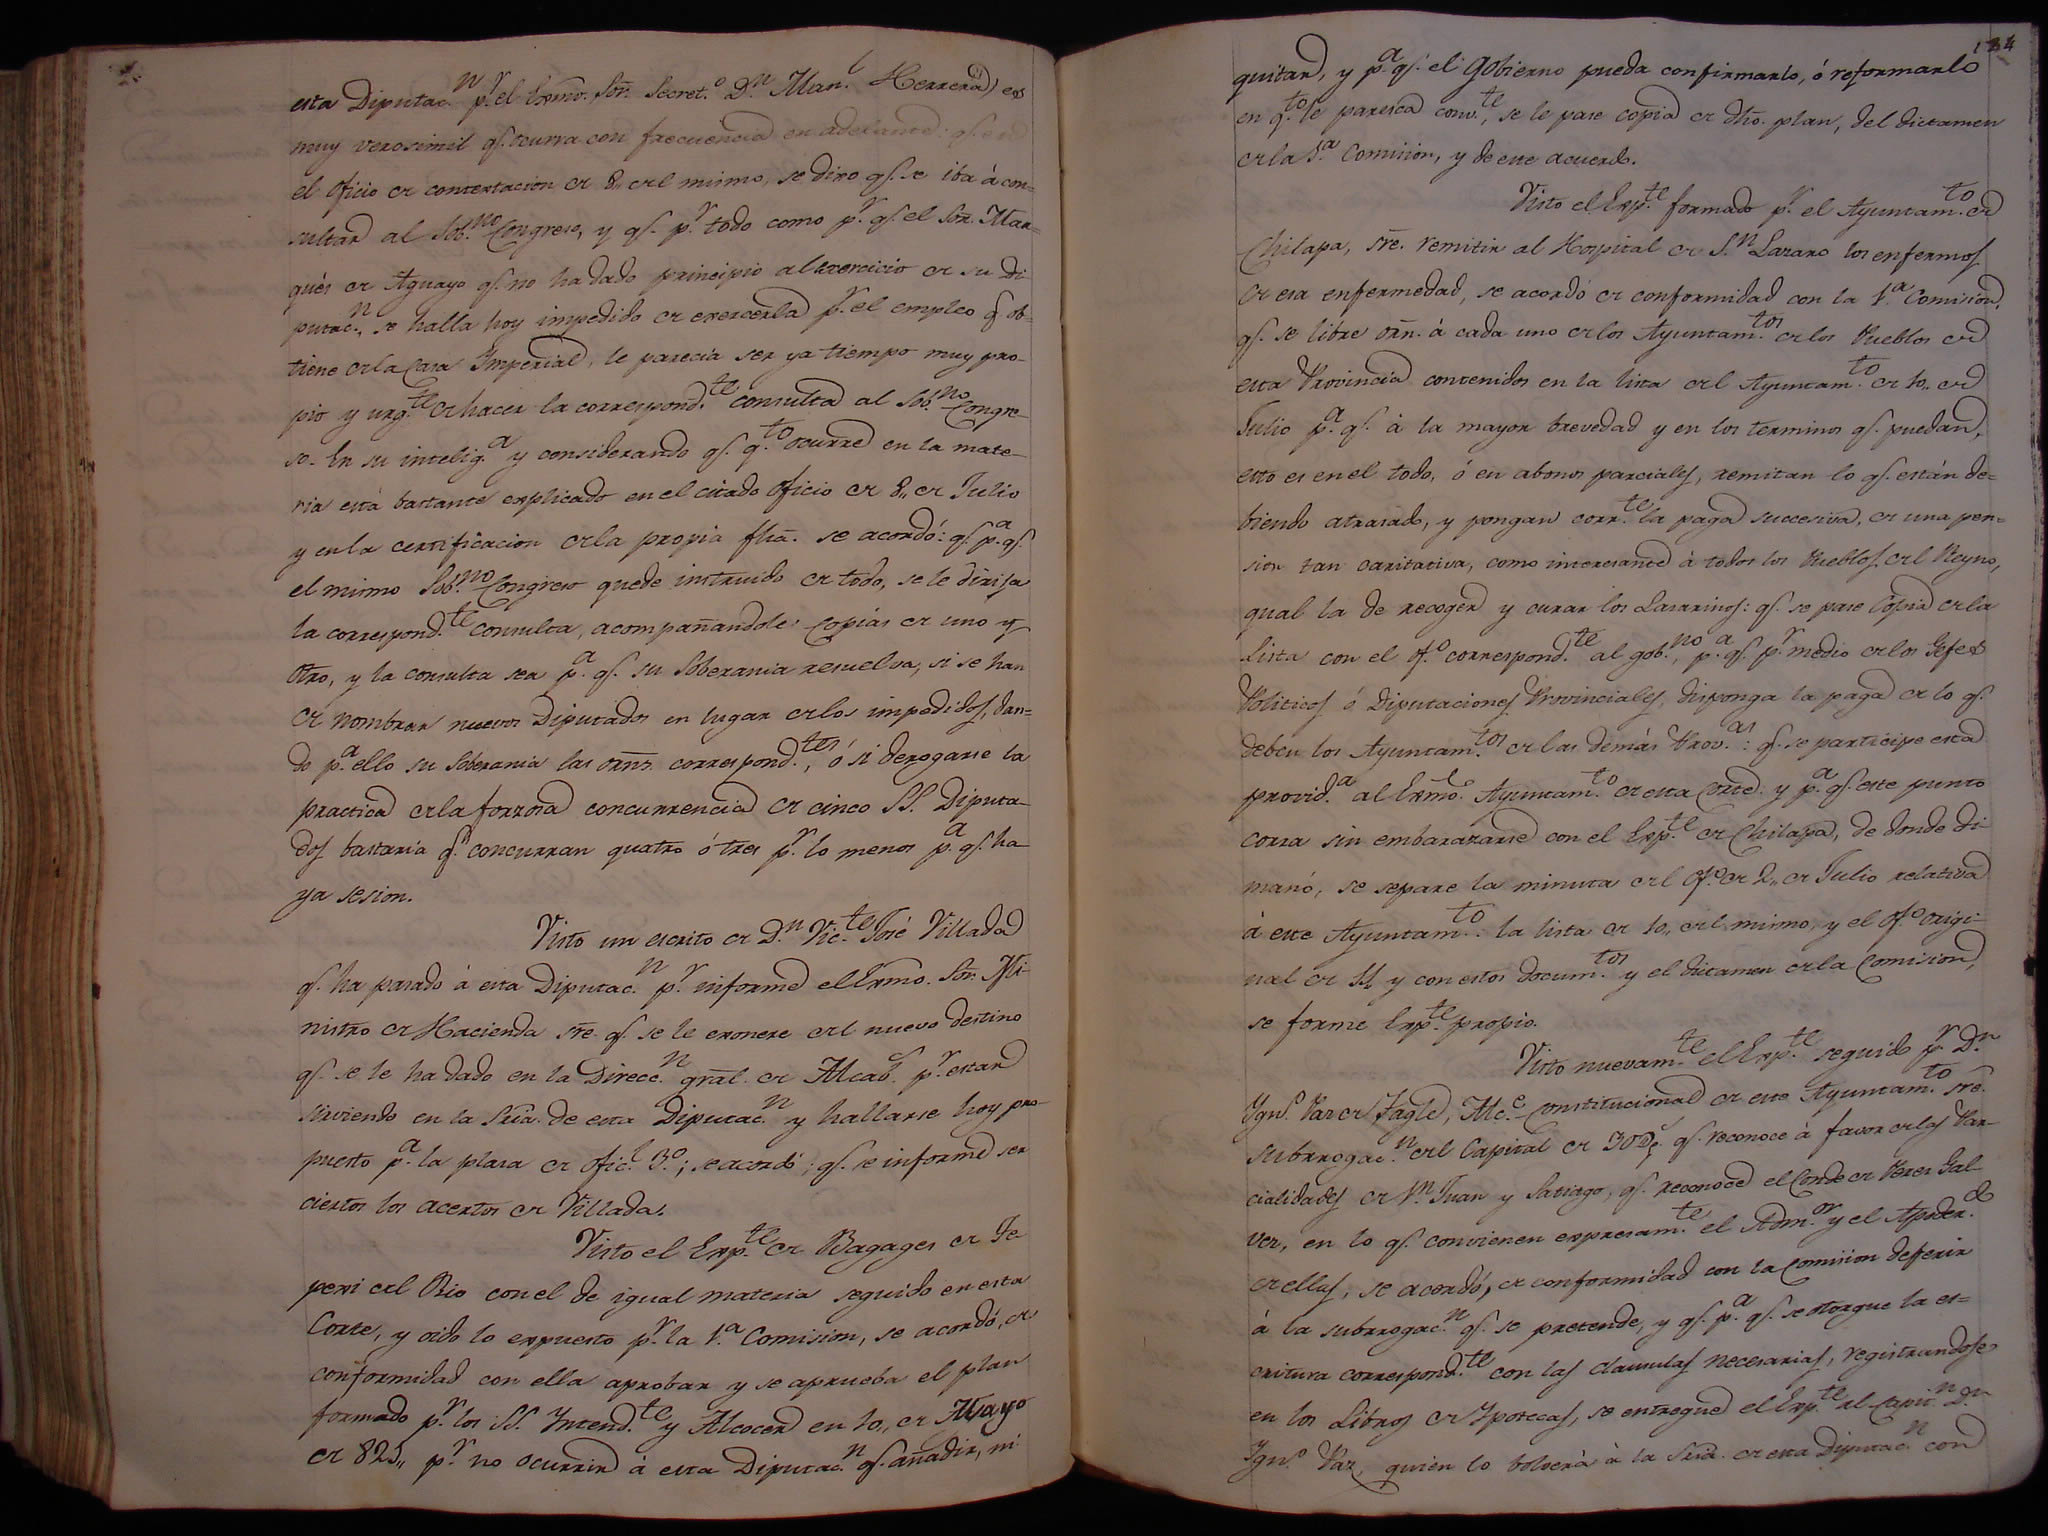 esta Diputac.n p.r el Exmo. Sor. Secret.o D.n Man.l Herrera) es
muy verosimil q.e ocurra con frecuencia en adelante: q.e en
el oficio de contextacion de 8,, del mismo, se dixo q.e se iba á con=
sultar al Sob.no Congreso, y q.e p.r todo como p.r q.e el Sor. Mar=
qués de Aguayo q.e no ha dado principio al exercicio de su di
putac.n, se halla hoy impedido de exercerla p.r el empleo q.e ob=
tiene de la Casa Imperial, le parecia ser ya tiempo muy pro-
pio y urg.te de hacer la correspond.te consulta al Sob.no Congre-
so. En su intelig.a y considerando q.e q.to ocurre en la mate-
ria está bastante explicado en el citado oficio de 8,, de Julio
y en la certificacion de la propia fha. se acordó: q.e p.a q.e
el mismo Sob.no Congreso quede instruido de todo, se le dirija
la correspond.te consulta, acompañandole copias de uno y
otro, y la consulta sea p.a q.e su Soberania resuelva, si se han
de nombrar nuevos Diputados en lugar de los impedidos, dan=
do p.a ello su Soberania las orns. correspond.tes, ó si derogarse la
practica de la forzosa concurrencia de cinco SS. Diputa-
dos bastaria q.e concurran quatro ó tres p.r lo menos p.a q.e ha-
ya sesion.
Visto un escrito de D.n Vic.te José Villada
q.e ha pasado á esta Diputac.n p.r informe el Exmo. Sor. Mi-
nistro de Hacienda sre. q.e se le exonere del nuevo destino
q.e se le ha dado en la Direcc.n gral. de Alcab.s p.r estar
sirviendo en la Sria. de esta Diputac.n y hallarse hoy pro-
puesto p.a la plaza de ofic.l 3.o; se acordó; q.e se informe ser
ciertos los acertos de Villada.
Visto el Exp.te de Bagages de Te
pexi del Rio con el de igual materia seguido en esta
Corte, y oido lo expuesto p.r la 1.a Comision, se acordó, de
conformidad con ella aprobar y se aprueba el plan
formado p.r los SS. Yntend.te y Alcocer en 10,, de Mayo
de 821,, p.r no ocurrir á esta Diputac.n q.e añadir, ni
184
quitar, y p.a q.e el Gobierno pueda confirmarlo, ó reformarlo
en q.to le paresca conv.te, se le pase copia de dho. plan, del dictamen
de la 1.a Comision, y de este acuerdo.
Visto el Exp.te formado p.r el Ayuntam.to de
Chilapa, sre. remitir al Hospital de S.n Lazaro los enfermos
de esa enfermedad, se acordó de conformidad con la 1.a Comision,
q.e se libre orn. á cada uno de los Ayuntam.tos de los Pueblos de
esta Provincia contenidos en la lista del Ayuntam.to de 10,, de
Julio p.a q.e á la mayor brevedad y en los terminos q.e puedan,
esto es en el todo, ó en abonos parciales, remitan lo q.e están de=
biendo atrasado, y pongan corr.te la paga succesiva, de una pen=
sion tan caritativa, como interesante á todos los Pueblos del Reyno,
qual la de recoger y curar los Lazarinos: q.e se pase Copia de la
Lista con el of.o correspond.te al gob.no, p.a q.e p.r medio de los Gefes
Politicos ó Diputaciones Provinciales, disponga la paga de lo q.e
deben los Ayuntam.tos de las demás Prov.as: q.e se participe esta
provid.a al Exmo. Ayuntam.to de esta Corte. y p.a q.e este punto
corra sin embarazarse con el Exp.te de Chilapa, de donde di
manó, se separe la minuta del of.o de 2,, de Julio relativa
á este Ayuntam.to: la lista de 10,, del mismo, y el of.o origi-
nal de 11,, y con estos docum.tos y el dictamen de la Comision,
se forme Exp.te propio.
Visto nuevam.te el Exp.te seguido p.r D.n
Ygn.o Paz de Tagle, Alc.e Constitucional de este Ayuntam.to sre.
subrrogac.n del Capital de 30 D p.s q.e reconoce á favor de las Par-
cialidades de S.n Juan y Satiago, q.e reconoce el Conde de Perez Gal
vez, en lo q.e convienen expresam.te el Adm.or y el Apoder.do
de ellas, se acordó, de conformidad con la Comision deferir
á la subrrogac.n q.e se pretende, y q.e p.a q.e se otorgue la es=
critura correspond.te con las clausulas necesarias, registrandose
en los Libros de Ypotecas, se entregue el Exp.te al Capit.n D.n
Ygn.o Paz, quien lo bolverá á la Sria. de esta Diputac.n con